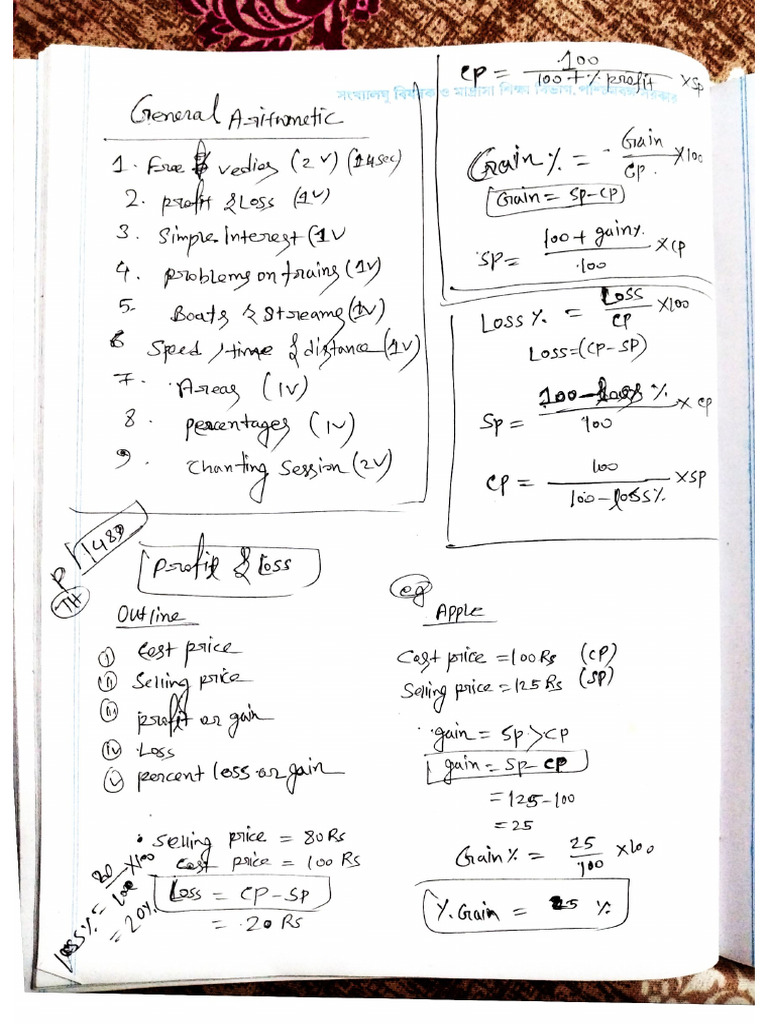 সংখ্যালঘু বিষয়ক ও মাদ্রাসা শিক্ষা বিভাগ, পশ্চিমবঙ্গ সরকার
General Arithmetic
1. Free vedios (2V) (14sec)
2. Profit & Loss (1V)
3. Simple Interest (1V
4. Problems on trains (1V)
5. Boats & Streams (1V)
6 Speed, time & distance (1V)
7. Areas (1V)
8. Percentages (1V)
9. Chanting Session (2V)
CP = 100 / 100 + % profit × SP
Gain % = Gain / CP. × 100
Gain = SP - CP
SP = 100 + gain% / 100 × CP
Loss % = Loss / CP × 100
Loss = (CP - SP)
SP = 100 - loss % / 100 × CP
CP = 100 / 100 - loss % × SP
P 1480
TH
Profit & Loss
Outline
i Cost price
ii Selling price
iii profit or gain
iv Loss
v percent loss or gain
• Selling price = 80 Rs
Cost price = 100 Rs
Loss = CP - SP
= 20 Rs
Loss % = 20 / 100 × 100
= 20%
eg
Apple
Cost price = 100 Rs (CP)
Selling price = 125 Rs (SP)
gain = SP > CP
gain = SP - CP
= 125 - 100
= 25
Gain % = 25 / 100 × 100
% Gain = 25 %